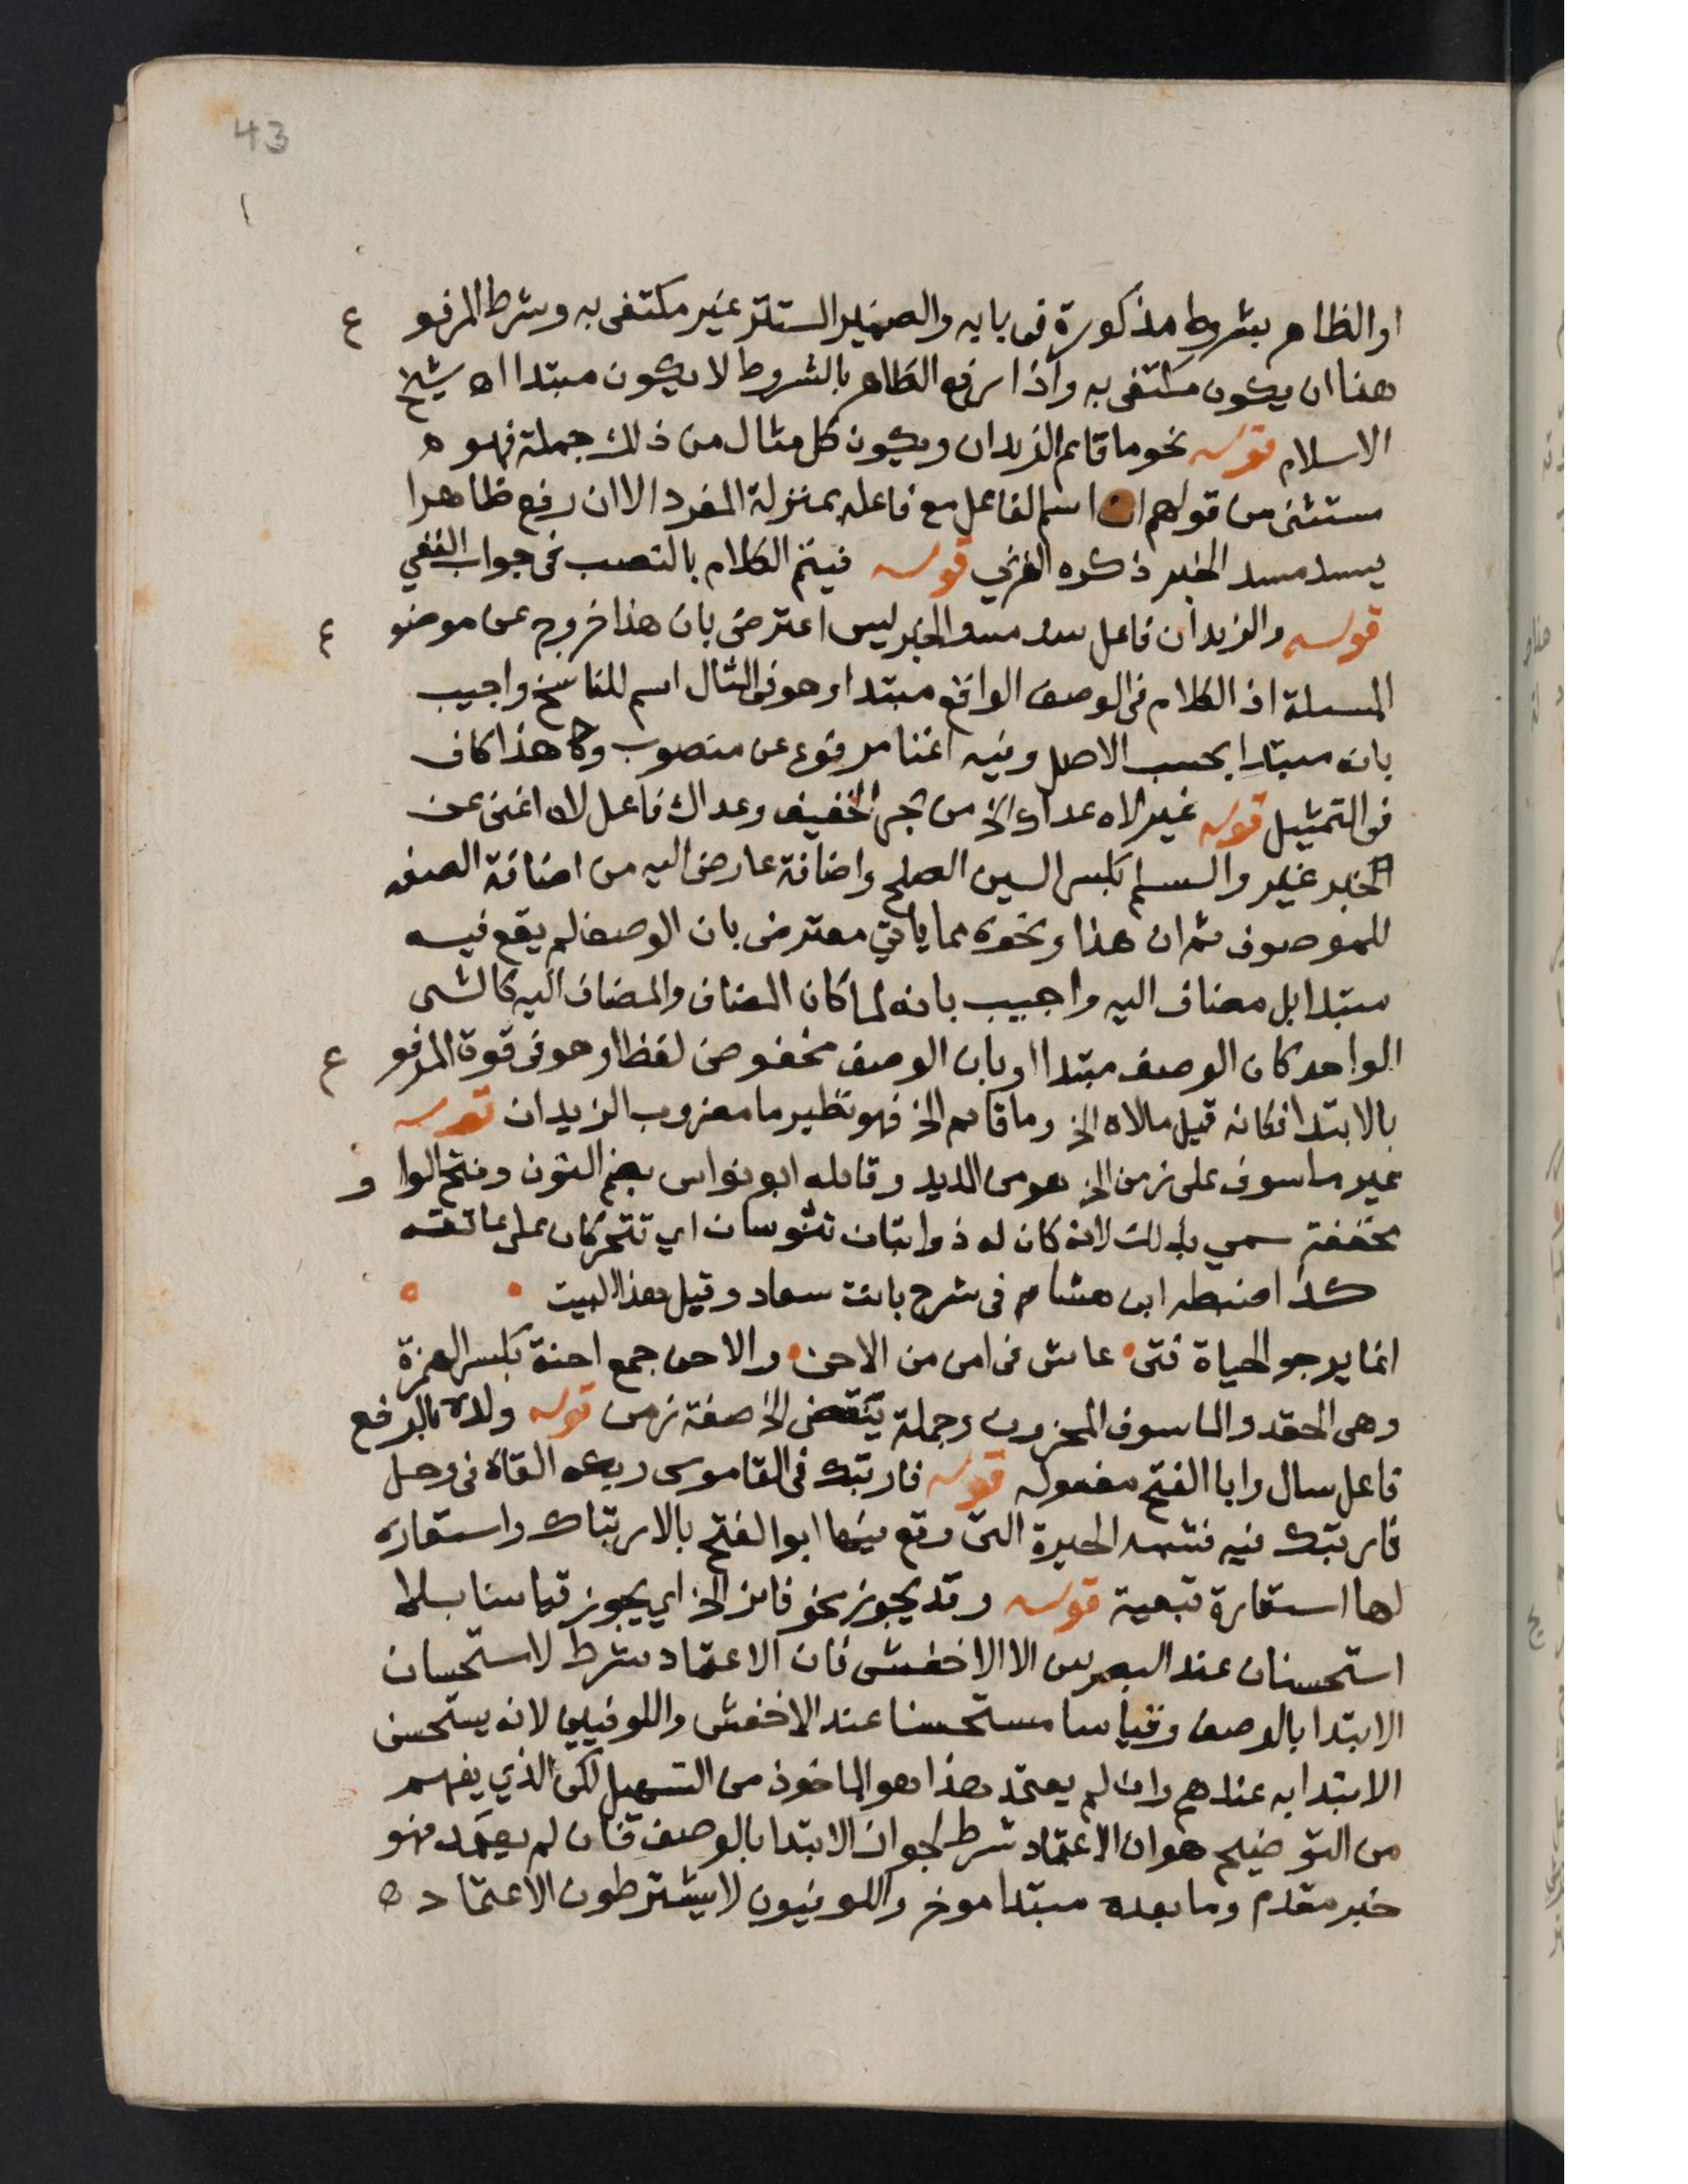 43
١
او الظاهر بشروط مذكورة فى بابه والضمير المستتر غير مكتفى به وشرط المرفو ع
هنا ان يكون مكتفى به واذا رفع الظاهر بالشروط لا يكون مبتدا اه شيخ
الاسلام قوله نحو ما قايم الزيدان ويكون كل مثال من ذلك جملة فهو ه
مستثنى من قولهم ان اسم الفاعل مع فاعله بمنزلة المفرد الا ان رفع ظاهرا
يسد مسد الخبر ذكره الغزي قوله فيتم الكلام بالنصب فى جواب النفي
قوله والزيدان فاعل سد مسد الخبر ليس اعترض بان هذا خروج عن موضو ع
المسىلة اذ الكلام فى الوصف الواقع مبتدا وهو فى المثال اسم للناسخ واجيب
بانه مبتدا بحسب الاصل وفيه اغنا مرفوع عن منصوب وكا هذا كاف
فى التمثيل قوله غير لاه عداك الخ من بحر الخفيف وعداك فاعل لاه اغنى عن
الخبر غير والسلم بكسر السين الصلح واضافة عارض اليه من اضافة الصفه
للموصوف ثم ان هذا ونحوه مما ياتي معترض بان الوصف لم يقع فيه
مبتدا بل مضاف اليه واجيب بانه لما كان المضاف والمضاف اليه كالشى
الواحد كان الوصف مبتدا او بان الوصف مخفوض لفظا وهو فى قوة المرفو ع
بالابتدا فكانه قيل ما لاه الخ وما قايم الخ فهو نظير ما مضروب الزيدان قوله
غير ماسوف على زمن الخ هو من المديد وقايله ابو نواس بضم النون وفتح الوا و
مخففة سمي بذلك لانه كان له ذوابتان تنوسان اي تتحركان على عاتقه
كذا ضبطه ابن هشام فى شرح بانت سعاد وقبل هذا البيت
انما يرجو الحياة فتى عاش فى امن من الاحن والاحن جمع احنة بكسر الهمزة
وهى الحقد والماسوف المحزون وجملة ينقضى الخ صفة زمن قوله ولده بالرفع
فاعل سال وابا الفتح مفعوله قوله فارتبك فى القاموس ربكه القاه فى وحل
فارتبك فيه فشبه الحيرة التى وقع فيها ابو الفتح بالارتباك واستعاره
لها استعارة تبعية قوله وقد يجوز نحو فائز الخ اي يجوز قياسا بلا
استحسان عند البصريين الا الاخفش فان الاعتماد شرط لاستحسان
الابتدا بالوصف وقياسا مستحسنا عند الاخفش والكوفيين لانه يستحسن
الابتدا به عندهم وان لم يعتمد هذا هو الماخوذ من التسهيل لكن الذي يفهم
من التوضيح هو ان الاعتماد شرط لجواز الابتدا بالوصف فان لم يعتمد فهو
خبر مقدم وما بعده مبتدا موخر والكوفيون لا يشترطون الاعتماد ه